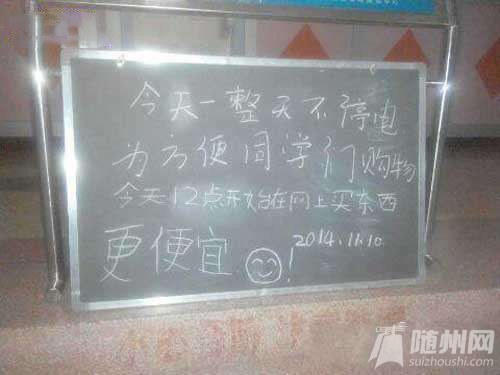 今天一整天不停电
为方便同学们购物
今天12点开始在网上买东西
更便宜 ! 2014.11.10
随州网
suizhoushi.com